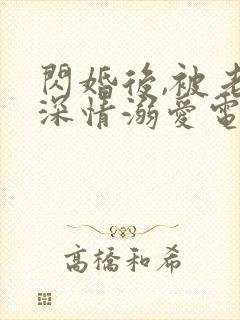 閃婚後,被老
深情溺愛電
高橋和希